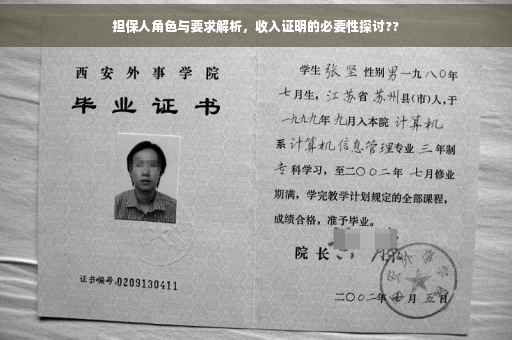 担保人角色与要求解析，收入证明的必要性探讨??
西安外事学院
毕业证书
证书编号:0209130411
学生 张坚 性别 男 一九八〇年
七月生，江苏省 苏州县(市)人,于
一九九九年九月入本院 计算机
系 计算机信息管理专业 三 年制
专科学习，至二〇〇二年 七月修业
期满，学完教学计划规定的全部课程，
成绩合格，准予毕业。
院长
二〇〇二年 月五日